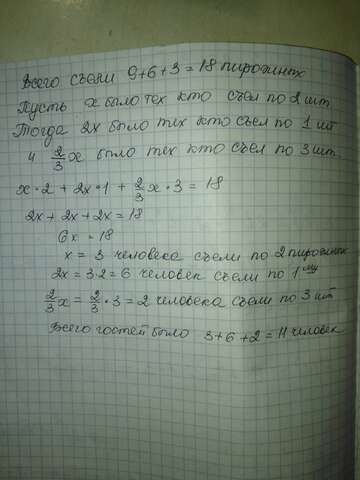 Всего съели 9+6+3=18 пирожных
Пусть x было тех кто съел по 2 шт
Тогда 2x было тех кто съел по 1 шт
и 2/3 x было тех кто съел по 3 шт.
x·2 + 2x·1 + 2/3 x·3 = 18
2x + 2x + 2x = 18
6x = 18
x = 3 человека съели по 2 пирожных
2x = 3·2 = 6 человек съели по 1му
2/3 x = 2/3 · 3 = 2 человека съели по 3 шт
Всего гостей было 3+6+2=11 человек